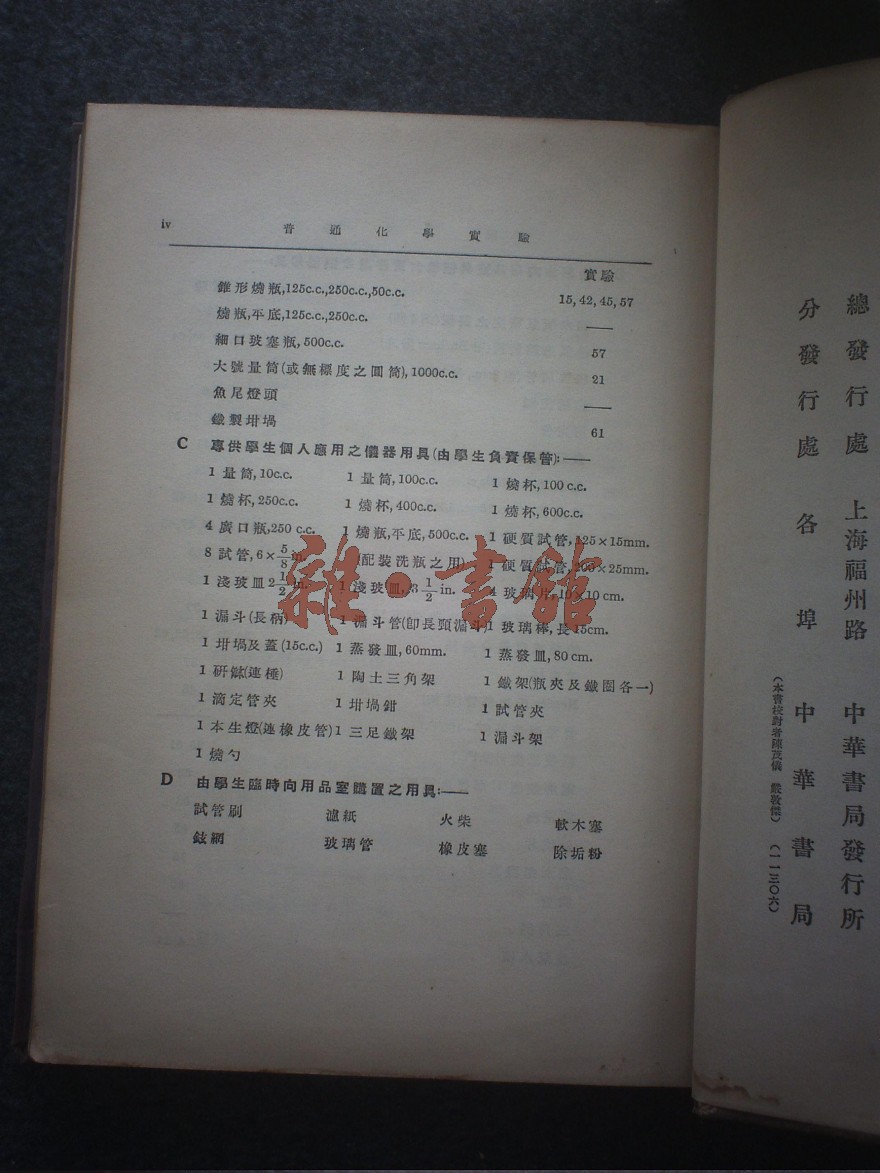 iv 普通化學實驗
實驗
錐形燒瓶,125c.c.,250c.c.,50c.c. 15,42,45,57
燒瓶,平底,125c.c.,250c.c. ——
細口玻塞瓶,500c.c. 57
大號量筒(或無標度之圓筒),1000c.c. 21
魚尾燈頭 ——
鐵製坩堝 61
C 專供學生個人應用之儀器用具(由學生負責保管):——
1 量筒,10c.c. 1 量筒,100c.c. 1 燒杯,100 c.c.
1 燒杯,250c.c. 1 燒杯,400c.c. 1 燒杯,600c.c.
4 廣口瓶,250 c.c. 1 燒瓶,平底,500c.c. 1 硬質試管,125×15mm.
8 試管,6×5/8 in. (配裝洗瓶之用) 1 硬質試管,200×25mm.
1 淺玻皿 2 1/2 in. 1 淺玻皿,3 1/2 in. 4 玻璃片,10×10 cm.
1 漏斗(長柄) 1 漏斗管(卽長頸漏斗) 1 玻璃棒,長15cm.
1 坩堝及蓋(15c.c.) 1 蒸發皿,60mm. 1 蒸發皿,80 cm.
1 研鉢(連棰) 1 陶土三角架 1 鐵架(瓶夾及鐵圈各一)
1 滴定管夾 1 坩堝鉗 1 試管夾
1 本生燈(連橡皮管) 1 三足鐵架 1 漏斗架
1 燒勺
D 由學生臨時向用品室購置之用具:——
試管刷 濾紙 火柴 軟木塞
鉉網 玻璃管 橡皮塞 除垢粉
雜·書館
總發行處 上海福州路 中華書局發行所
分發行處 各埠 中華書局
(本書校對者陳茂儀 嚴敦傑) (一一三〇六)